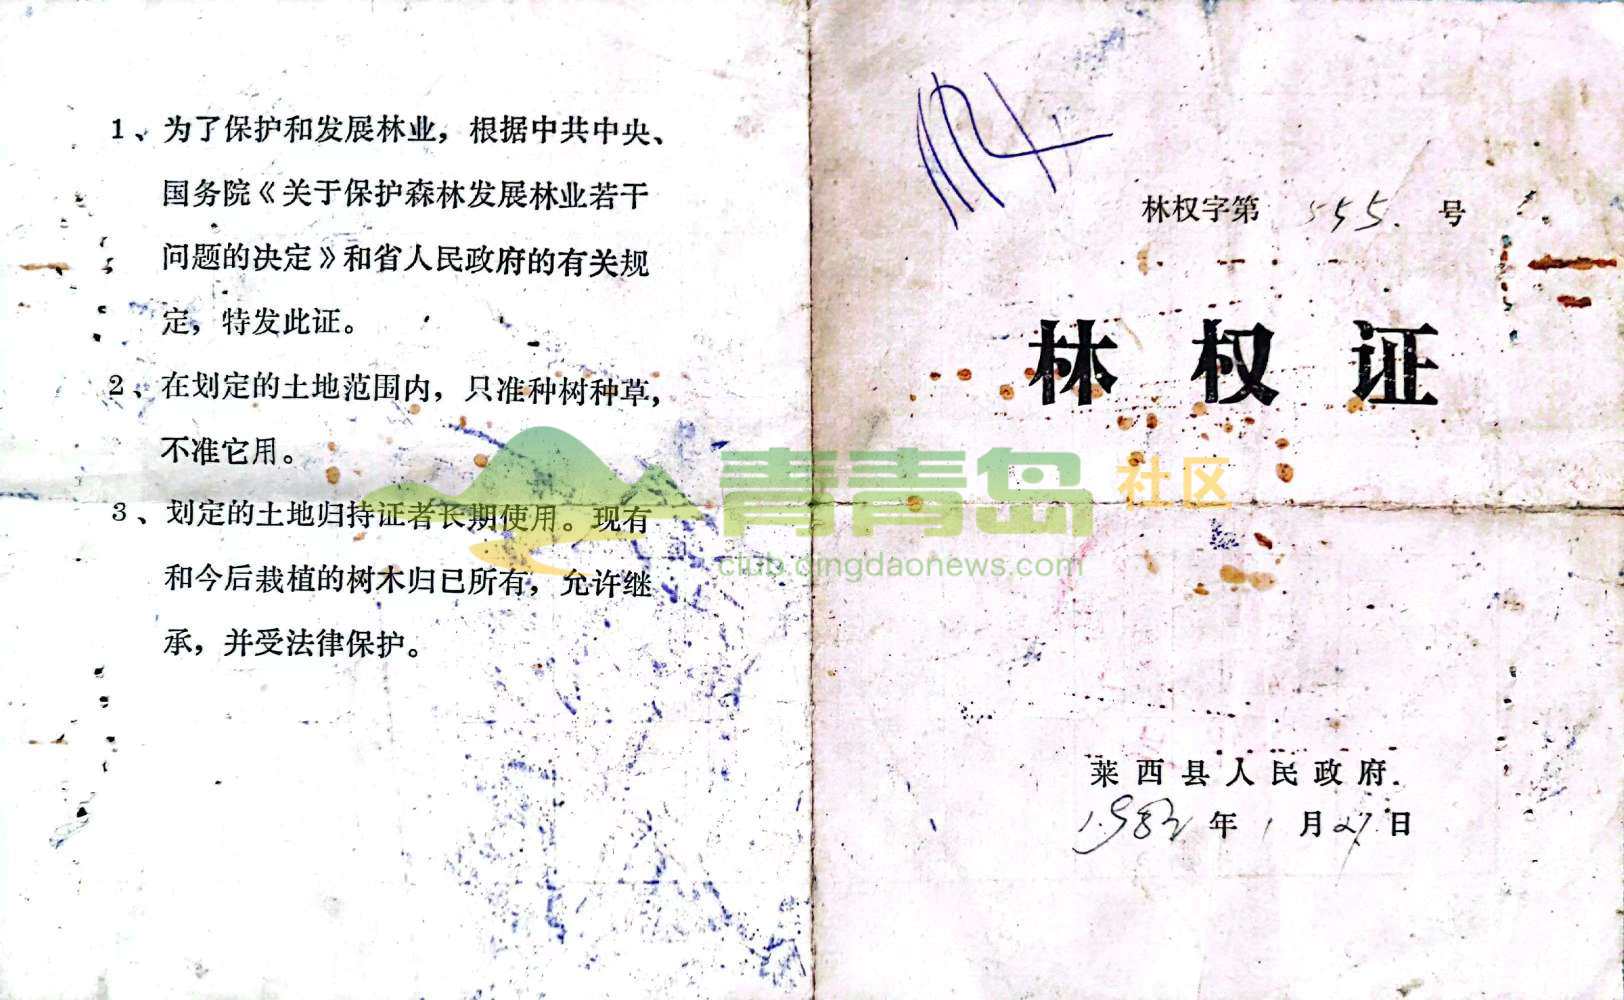 1、为了保护和发展林业，根据中共中央、
国务院《关于保护森林发展林业若干
问题的决定》和省人民政府的有关规
定，特发此证。
2、在划定的土地范围内，只准种树种草，
不准它用。
3、划定的土地归持证者长期使用。现有
和今后栽植的树木归已所有，允许继
承，并受法律保护。
林权字第 555. 号
林权证
莱西县人民政府.
1982年1月27日
青青岛社区
club.qingdaonews.com